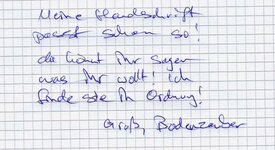 Meine Handschrift
passt schon so!
da könnt ihr sagen
was ihr wollt! ich
finde sie in Ordnung!
Gruß, Bodenzauber